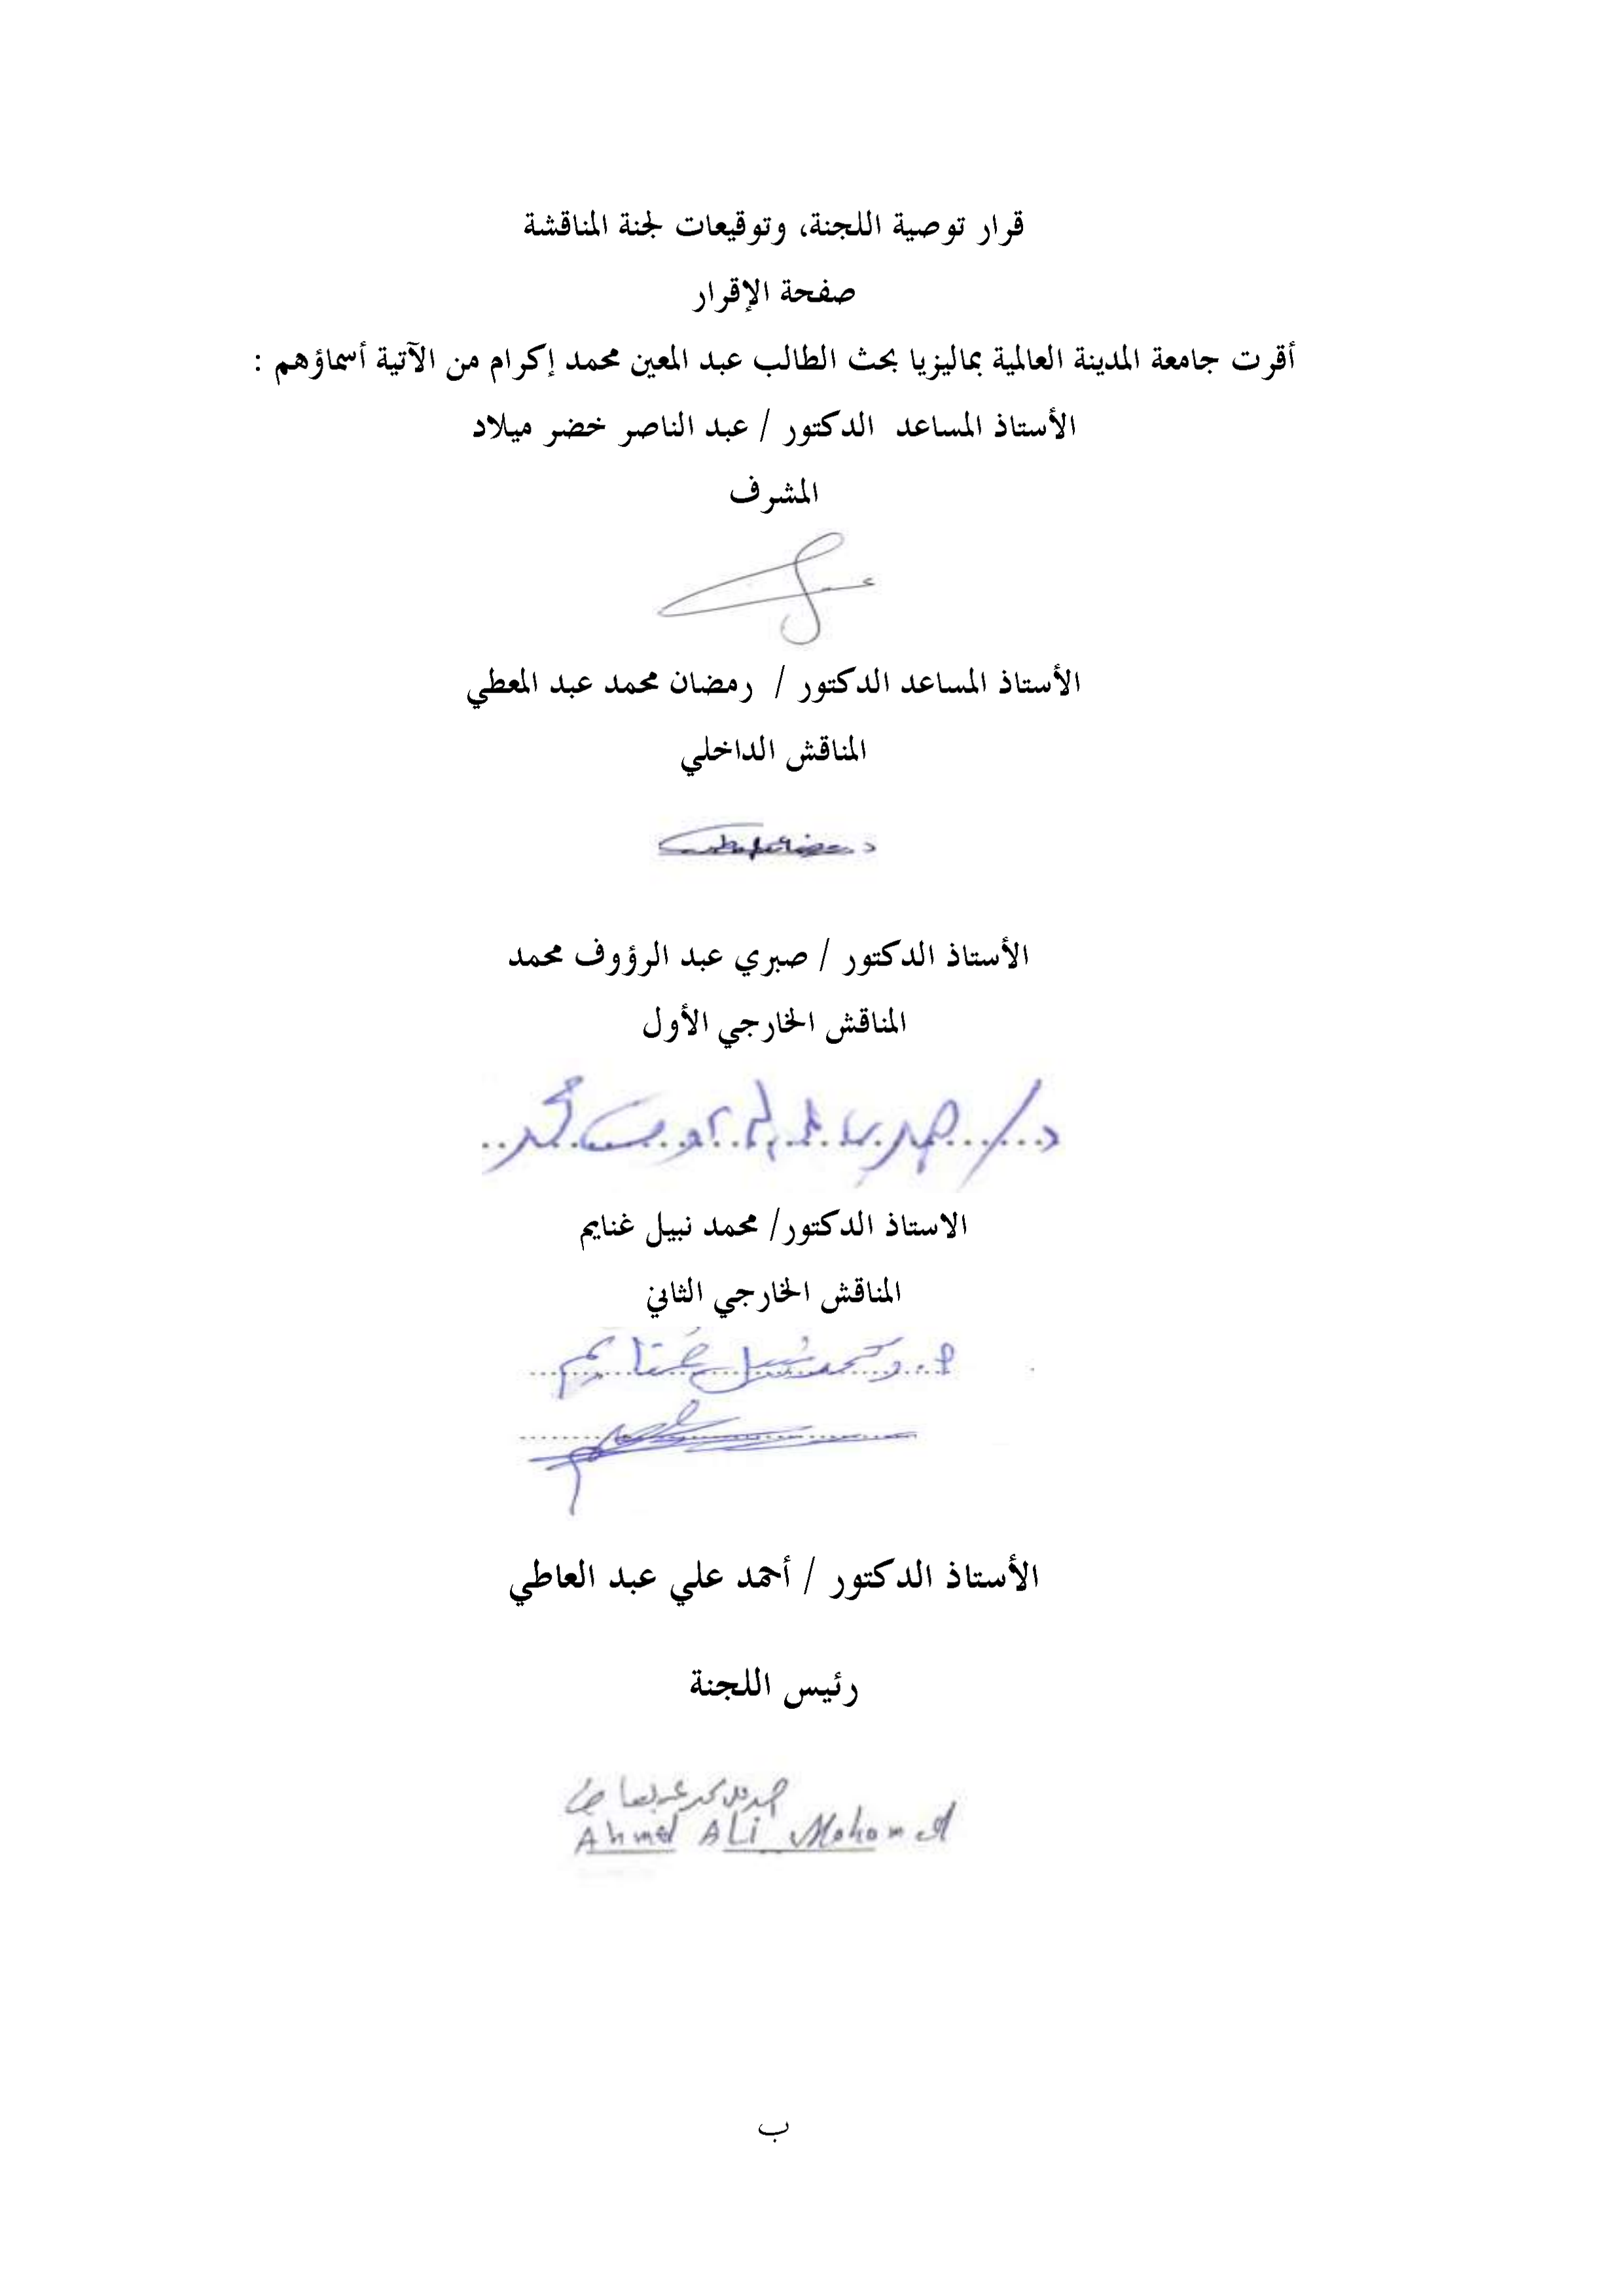 قرار توصية اللجنة، وتوقيعات لجنة المناقشة
صفحة الإقرار
أقرت جامعة المدينة العالمية بماليزيا بحث الطالب عبد المعين محمد إكرام من الآتية أسماؤهم :
الأستاذ المساعد الدكتور / عبد الناصر خضر ميلاد
المشرف
الأستاذ المساعد الدكتور / رمضان محمد عبد المعطي
المناقش الداخلي
الأستاذ الدكتور / صبري عبد الرؤوف محمد
المناقش الخارجي الأول
د/ صبري عبد الرؤوف محمد
الاستاذ الدكتور/ محمد نبيل غنايم
المناقش الخارجي الثاني
أ. د محمد نبيل غنايم
الأستاذ الدكتور / أحمد علي عبد العاطي
رئيس اللجنة
Ahmed ALi Mohamed
ب